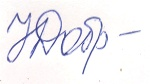 УДобр-